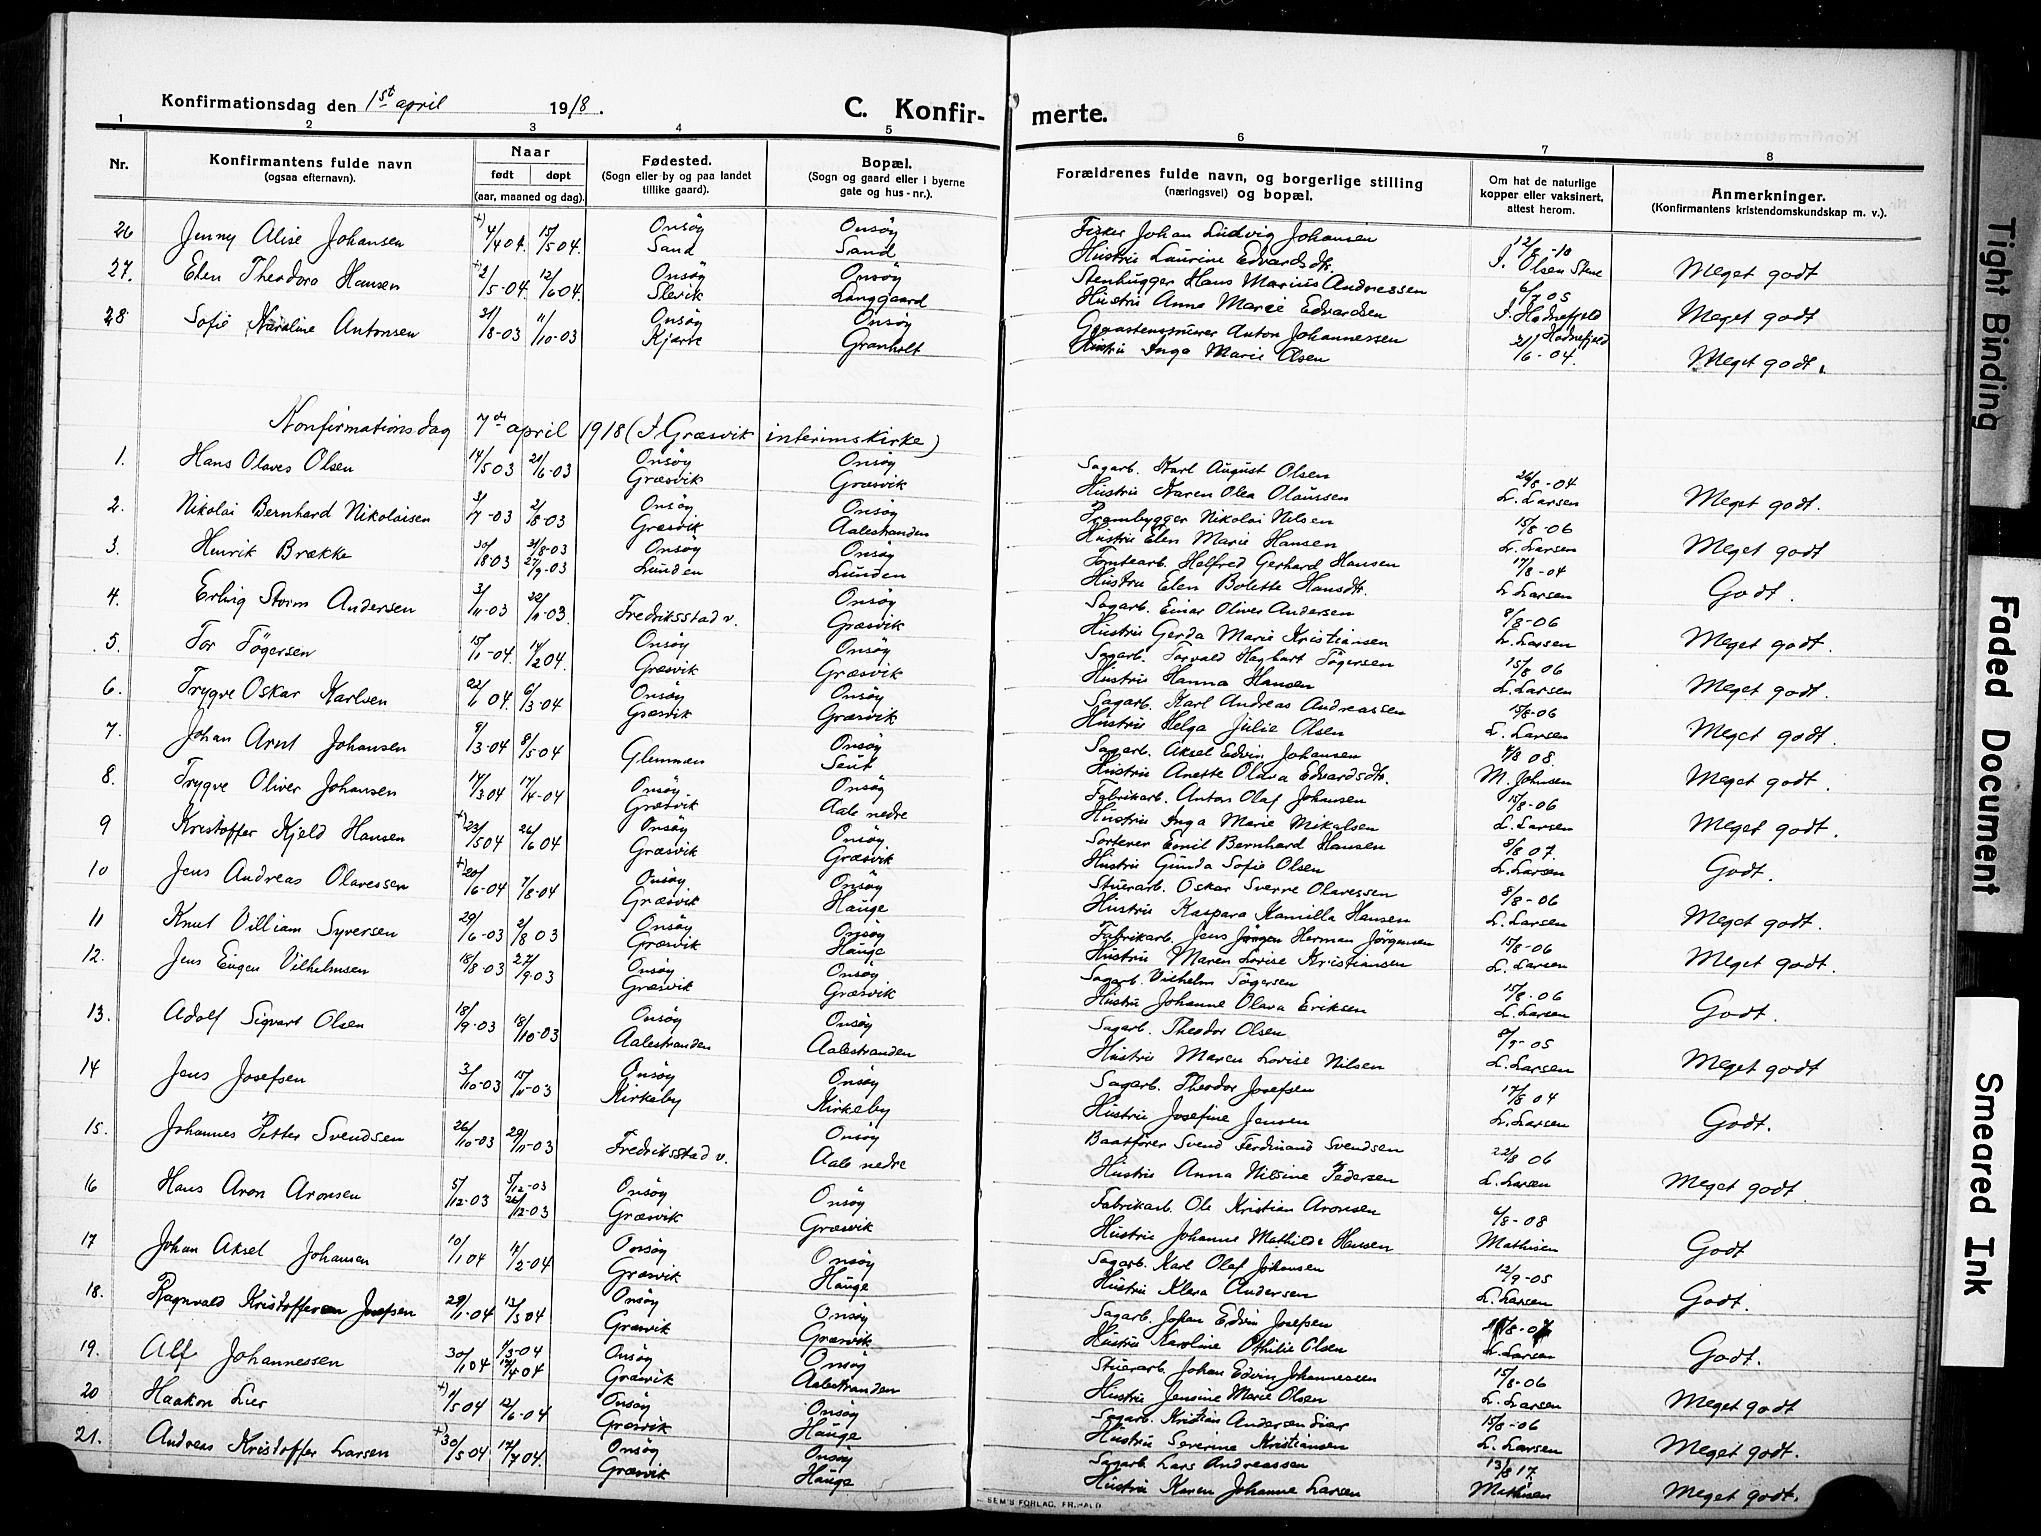 Konfirmationsdag den 1st april 1918. C. Konfir- merte.
1 2 3 4 5 6 7 8
Nr. Konfirmantens fulde navn (ogsaa efternavn). Naar født døpt (aar, maaned og dag). Fødested. (Sogn eller by og paa landet tillike gaard). Bopæl. (Sogn og gaard eller i byerne gate og hus-nr.). Forældrenes fulde navn, og borgerlige stilling (næringsvei) og bopæl. Om hat de naturlige kopper eller vaksinert, attest herom. Anmerkninger. (Konfirmantens kristendomskundskap m. v.).
26 Jenny Alise Johansen +) 4/4 04. 15/5 04. Onsöy Sand Onsöy Sand Fisker Johan Ludvig Johansen Hustru Laurine Edvardsdtr. 12/8-10 J. Olsen Stene Meget godt
27. Elen Theodora Hansen +) 2/5-04. 12/6 04. Onsöy Slevik Onsöy Langgaard Stenhugger Hans Marius Andreassen Hustru Anna Marie Edvardsen 6/7 05 J. Hodnefjeld Meget godt
28 Sofie Karoline Antonsen 31/8-03 11/10-03 Onsöy Kjærre Onsöy Granholt Graastensmurer Anton Johannessen Hustru Inga Marie Olsen Hodnefjeld 21/6-04. Meget godt.
Konfirmationsdag 7de april 1918 (I Græsvik interimskirke)
1. Hans Olaves Olsen 14/5 03 21/6-03 Onsöy Græsvik Onsöy Græsvik Sagarb. Karl August Olsen Hustru Karen Olea Olaussen 26/8-04 L. Larsen Meget godt.
2. Nikolai Bernhard Nikolaisen 3/7-03 2/8-03 Onsöy Græsvik Onsöy Aalestranden Prambygger Nikolai Nilsen Hustru Elen Marie Hansen 15/8-06 L. Larsen Meget godt.
3. Henrik Brække 30/1803 21/8-03 27/9-03 Onsöy Lunden Onsöy Lunden Tomtearb. Halfred Gerhard Hansen Hustru Elen Bolette Hansdtr. 17/8-04 L. Larsen Godt.
4. Erling Storm Andersen 3/11-03 22/11-03 Fredriksstad v. Onsöy Græsvik Sagarb. Einar Oliver Andersen Hustru Gerda Marie Kristiansen 8/8-06 L. Larsen Meget godt.
5. Tor Tögersen 15/1-04. 14/2 04. Onsöy Græsvik Onsöy Græsvik Sagarb. Torvald Haghart Tögersen Hustru Hanna Hansen 15/8 06 L. Larsen Meget godt.
6. Trygve Oskar Karlsen 22/1 04. 6/3-04 Onsöy Græsvik Onsöy Græsvik Sagarb. Karl Andreas Andreassen Hustru Helga Julie Olsen 15/8-06 L. Larsen Meget godt.
7. Johan Arnt Johansen 9/3-04 8/5 04 Glemmen Onsöy Seut Sagarb. Aksel Edvin Johansen Hustru Anette Olava Edvardsdtr. 4/8 08. M. Johnsen Meget godt.
8. Trygve Oliver Johansen 17/3 04 17/4-04 Onsöy. Græsvik Onsöy Aale nedre Fabrikarb. Anton Olaf Johansen Hustru Inga Marie Mikalsen 15/8-06 L. Larsen Meget godt.
9 Kristoffer Kjeld Hansen +) 23/5 04 26/6 04 Onsöy Græsvik Onsöy Græsvik Sorterer Emil Bernhard Hansen Hustru Gunda Sofie Olsen 8/8 07. L. Larsen Godt.
10 Jens Andreas Olavessen +) 20/6-04 7/8-04 Onsöy Græsvik Onsöy Hauge Stuerarb. Oskar Sverre Olavessen Hustru Kaspara Kamilla Hansen 8/8-06 L. Larsen Meget godt.
11 Knut Villiam Syversen 29/6-03 2/8 03 Onsöy Græsvik Onsöy Hauge Fabrikarb. Jens Jörgen Herman Jörgensen Hustru Maren Lovise Kristiansen 15/8-06 L. Larsen Meget godt.
12. Jens Eugen Vilhelmsen 18/8-03 27/9.03 Onsöy Græsvik Onsöy Græsvik Sagarb. Vilhelm Tögersen Hustru Johanne Olava Eriksen 15/8-06 L. Larsen Godt.
13. Adolf Sigvart Olsen 18/9-03 18/10-03 Onsöy Aalestranden Onsöy Aalestranden Sagarb. Theodor Olsen Hustru Maren Lovise Nilsen 9/9-05 L. Larsen Meget godt
14 Jens Josefsen 3/10-03 15/11-03 Onsöy Kirkeby Onsöy Kirkeby Sagarb. Theodor Josefsen Hustru Josefine Jensen 17/8 04 L. Larsen Godt.
15. Johannes Petter Svendsen 26/10-03 29/11-03 Fredriksstad v. Onsöy Aale nedre Baatförer Svend Ferdinand Svendsen Hustru Anna Nilsine Pedersen 22/8 06 L. Larsen Meget godt.
16 Hans Aron Aronsen 5/12-03 5/12-03 26/12-03 Onsöy Græsvik Onsöy Græsvik Fabrikarb. Ole Kristian Aronsen Hustru Johanne Mathilde Hansen 6/8-08 Mathisen Godt
17 Johan Aksel Johansen 10/1 04 14/2-04 Onsöy Græsvik Onsöy Hauge Sagarb. Karl Olaf Johansen Hustru Klara Andersen 12/9-05 L. Larsen Godt.
18. Ragnvald Kristofferen Josefsen 29/1-04 13/3 04 Onsöy Græsvik Onsöy Græsvik Sagarb. Johan Edvin Josefsen Hustru Karoline Othilie Olsen /8-07 L. Larsen Godt.
19. Alf Johannessen 30/1 04 1/3-04 17/4-04 Onsöy Græsvik Onsöy Aalestranden Stuerarb. Johan Edvin Johannessen Hustru Jensine Marie Olsen 15/8-06 L. Larsen Meget godt
20 Haakon Lier +) 1/5 04 12/6-04 Onsöy Græsvik Onsöy Hauge Sagarb. Kristian Andersen Lier Hustru Severine Kristiansen 15/8-06 L. Larsen Meget godt.
21. Andreas Kristoffer Larsen +) 30/5 04 17/7 04. Onsöy Græsvik Onsöy Hauge Sagarb. Lars Andreassen Hustru Karen Johanne Larsen 13/8 17. Mathisen Meget godt.
SEM'S FORLAG, FR.HALD.
Tight Binding
Faded Document
Smeared Ink